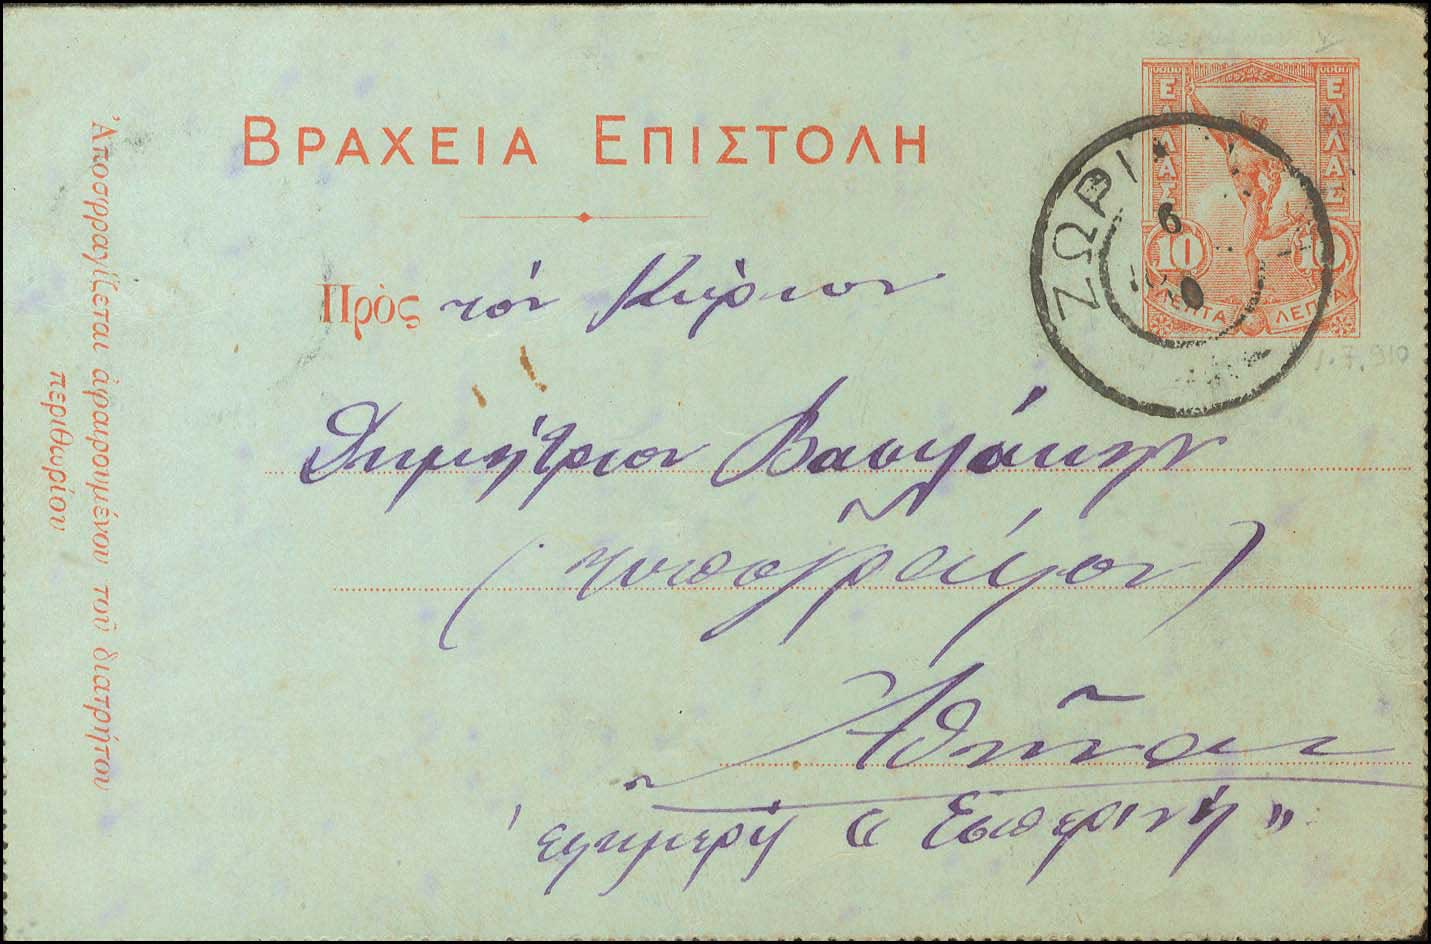 ΒΡΑΧΕΙΑ ΕΠΙΣΤΟΛΗ
ΕΛΛΑΣ
ΕΛΛΑΣ
10
10
ΛΕΠΤΑ
ΛΕΠΤΑ
ΖΩΡΙ
6
1.7.910
Πρὸς τὸν Κύριον
Δημήτριον
(τυπογράφον)
Ἀθήνας
ἐφημερὶς « Ἑσπερινή »
Ἀποσφραγίζεται ἀφαιρουμένου τοῦ διατρήτου
περιθωρίου